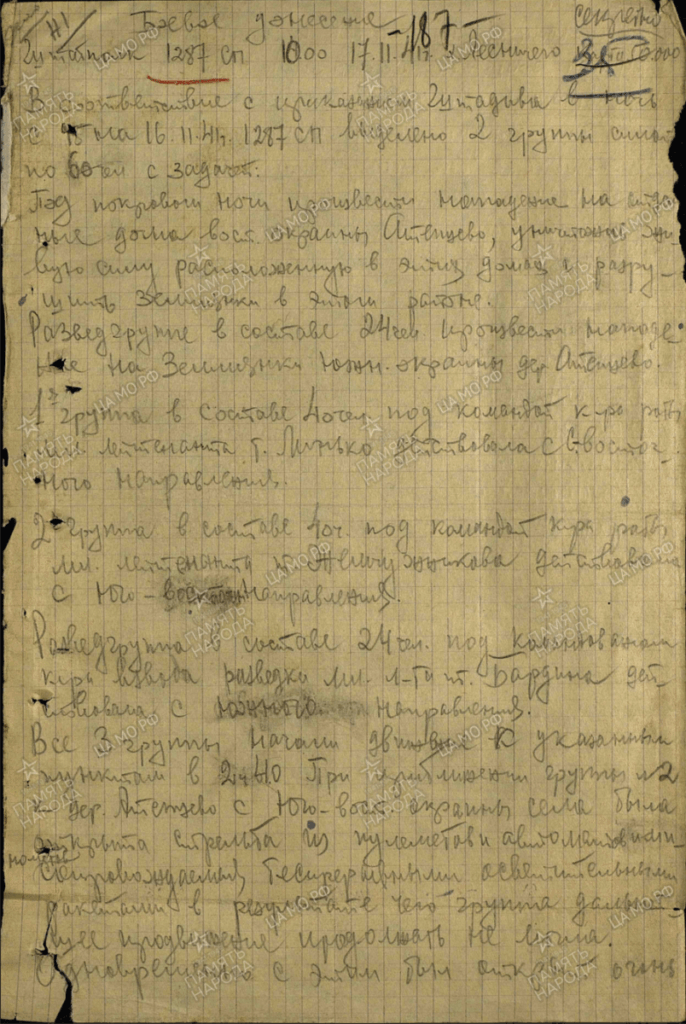 №1 Боевое донесение -187- секретно
Штаполк 1287 СП 16 00 17.11.41г. Лесничего 50.000
В соответствие с приказанием Штадива в ночь
с 15 на 16.11.41г. 1287 СП выделено 2 группы
по чел с задачей:
Под покровом ночи произвести нападение на
ные дома вост. окраины Атепцево, уничтожив жи
вую силу расположенную в этих домах и разру-
шить землянки в этом районе.
Разведгруппе в составе 24 чел произвести нападе
ние на землянки южн. окраины дер. Атепцево.
1я группа в составе 40 чел. под командой к-ра роты
мл. лейтенанта т. Линько действовала с С-восточ-
ного направления.
2я группа в составе 40 ч. под командой к-ра роты
мл. лейтенанта т. Жемчужникова действовала
с Юго-восточн направления.
Разведгруппа в составе 24 чел. под командованием
к-ра взвода разведки мл. л-та т. Бардина дей-
ствовала с южного направления.
Все 3 группы начали движение к указанным
пунктам в 2ч40 При приближении группы №2
к дер. Атепцево с Юго-вост. окраины села была
открыта стрельба из пулеметов и автоматов и ми-
нометов
сопровождаемая беспрерывными осветительными
ракетами в результате чего группа дальней-
шее продвижение продолжать не могла.
Одновременно с этим был открыт огонь
ПАМЯТЬ НАРОДА
ЦАМО.РФ